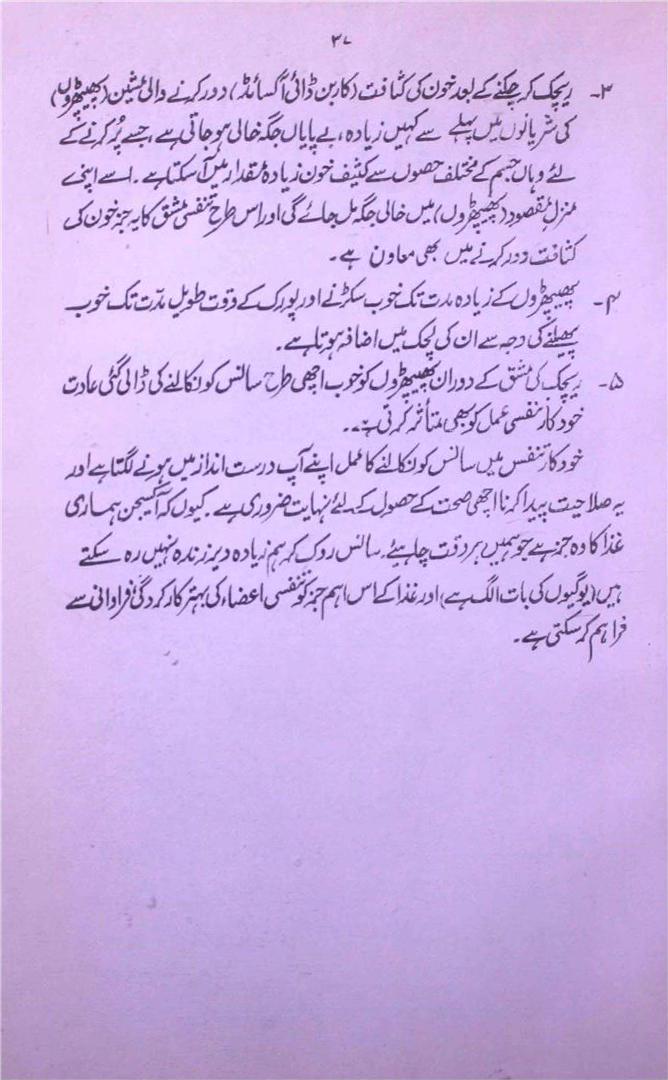 ۳۷
۳۔ ریچک کر چکنے کے بعد خون کی کثافت (کاربن ڈائی آکسائڈ) دور کرنے والی مشین (پھیپھڑوں)
کی شریانوں میں پہلے سے کہیں زیادہ، بے پایاں جگہ خالی ہو جاتی ہے، جسے پُر کرنے کے
لئے وہاں جسم کے مختلف حصوں سے کثیف خون زیادہ مقدار میں آ سکتا ہے۔ اسے اپنے
منزل مقصود (پھیپھڑوں) میں خالی جگہ مل جائے گی اور اس طرح تنفسی مشق کا یہ جز خون کی
کثافت دور کرنے میں بھی معاون ہے۔
۴۔ پھیپھڑوں کے زیادہ مدت تک خوب سکڑنے اور پورک کے وقت طویل مدّت تک خوب
پھیلنے کی وجہ سے ان کی لچک میں اضافہ ہوتا ہے۔
۵۔ ریچک کی مشق کے دوران پھیپھڑوں کو خوب اچھی طرح سانس کو نکالنے کی ڈالی گئی عادت
خود کار تنفسی عمل کو بھی متأثر کرتی ہے۔
خود کار تنفس میں سانس کو نکالنے کا عمل اپنے آپ درست انداز میں ہونے لگتا ہے اور
یہ صلاحیت پیدا کرنا اچھی صحت کے حصول کے لئے نہایت ضروری ہے۔ کیوں کہ آکسیجن ہماری
غذا کا وہ جز ہے جو ہمیں ہر وقت چاہیئے۔ سانس روک کر ہم زیادہ دیر زندہ نہیں رہ سکتے
ہیں (یوگیوں کی بات الگ ہے) اور غذا کے اس اہم جز کو تنفسی اعضاء کی بہتر کارکردگی فراوانی سے
فراہم کر سکتی ہے۔